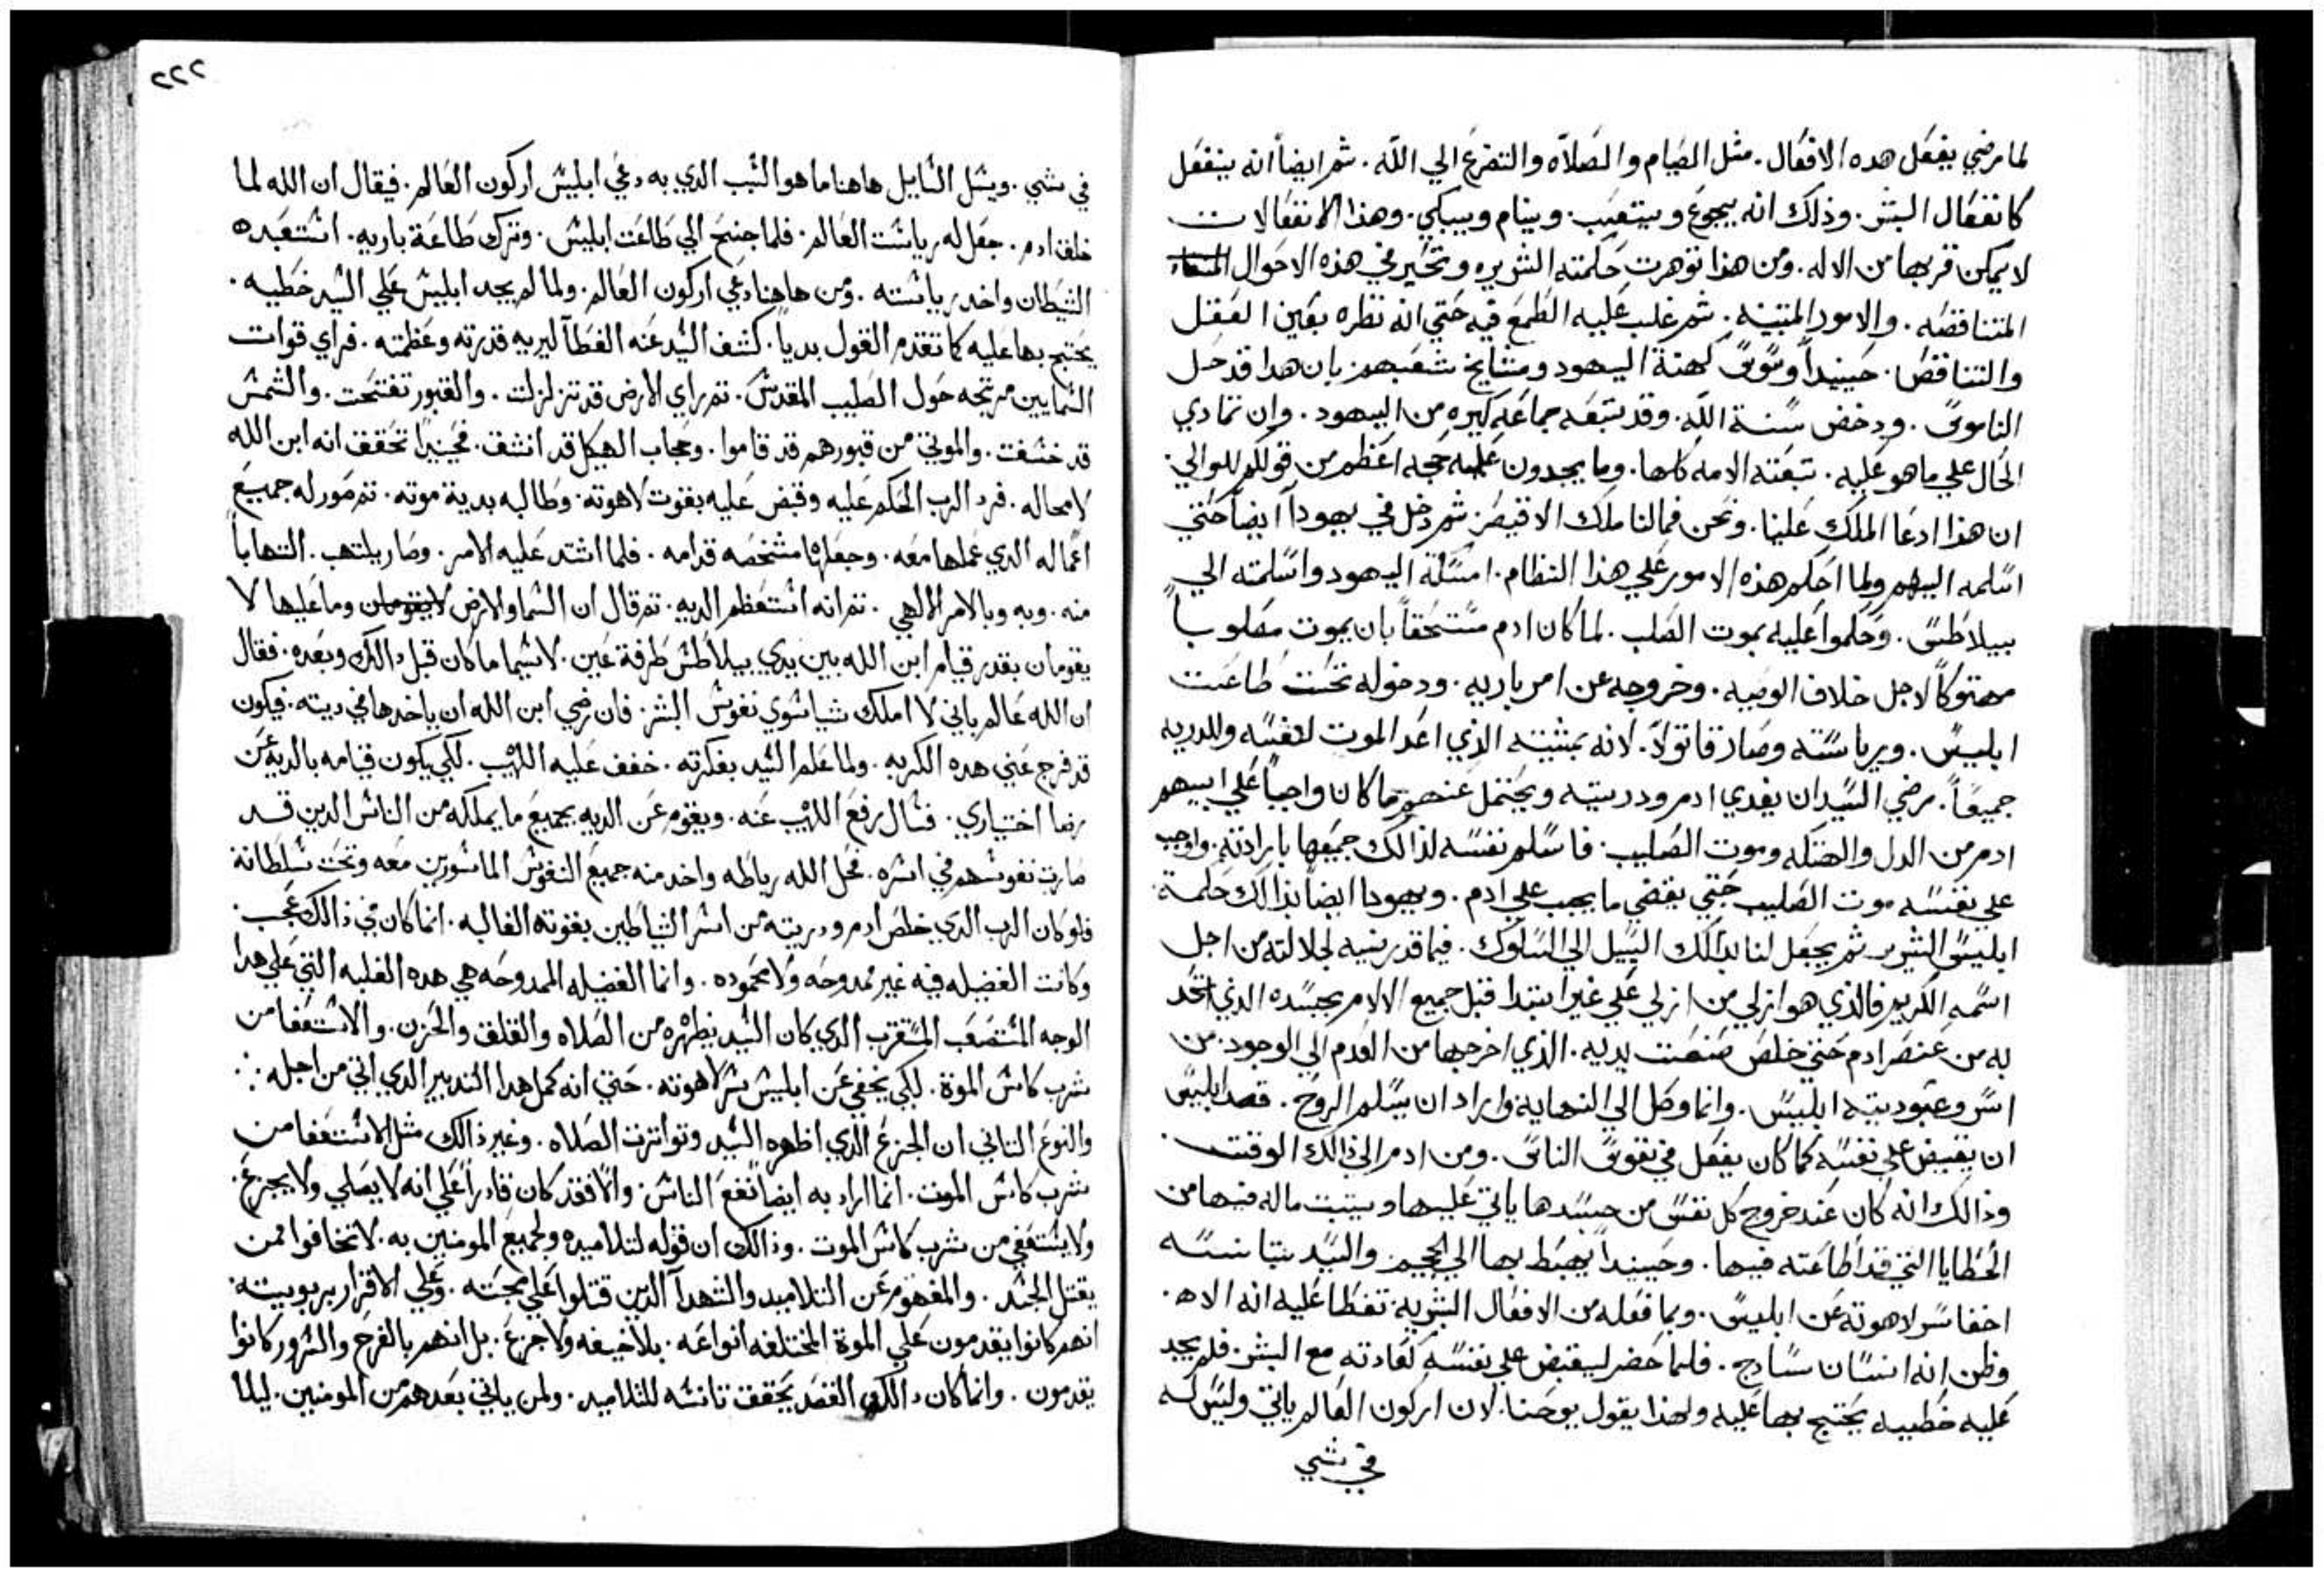 لما رضي يفعل هده الافعال. مثل الصيام والصلاه والتضرع الي الله. ثم ايضاً انه ينفعل
كانفعال البشر. وذلك انه يجوع ويتعب. وينام ويبكي. وهذا الانفعالات
لا يمكن قربها من الاله. ومن هذا توهرت حكمته الشريره وتحير في هذه الاحوال
المتناقضه. والامور المتبينه. ثم غلب عليه الطمع فيه حتي انه نظره بعين العقل
والتناقض. حينيداً وسوس كهنة اليهود ومشايخ شعبهم بان هدا قد حل
الناموس. ودخض سنة الله. وقد تبعه جماعه كيره من اليهود. وان تمادي
الحال علي ما هو عليه. تبعته الامه كلها. وما يجدون عليه حجه اعظم من قولكم للوالي.
ان هذا ادعا الملك علينا. ونحن فما لنا ملك الا قيصر. ثم دخل في يهودا ايضاً حتي
اسلمه اليهم ولما احكم هذه الامور علي هذا النظام. امسكة اليهود واسلمته الي
بيلاطس. وحكموا عليه بموت الصلب. لما كان ادم مستحقاً بان يموت مصلوباً
مهتوكاً لاجل خلاف الوصيه. وخروجه عن امر باريه. ودخوله تحت طاعت
ابليس. ورياسته وصار قاتولاً. لانه بمشيته الذي اعد الموت لنفسه وللدريه
جميعاً. رضي السيد ان يفدي ادم ودريته ويحتمل عنهم ما كان واجباً علي ابيهم
ادم من الدل والهتكه وموت الصليب. فاسلم نفسه لذالك جميعها بارادته. واوجب
علي نفسه موت الصليب حتي يقضي ما يجب علي ادم. ويهودا ايضاً بذالك حكمة
ابليس الشرير ثم يجعل لنا بدالك السبيل الي السلوك. فيما قد رينيه لجلالته من اجل
اسمه الكريم فالذي هو ازلي من ازلي علي غير ابتدا قبل جميع الالام بجسده الذي اتحد
به من عنصر ادم حتي خلص صنعت يديه. الذي اخرجها من العدم الي الوجود. من
اسر وعبوديته ابليس. وانما وصل الي النهاية واراد ان يسلم الروح. قصد ابليس
ان يقبض علي نفسه كما كان يفعل في نفوس الناس. ومن ادم الي ذالك الوقت.
وذالك انه كان عند خروج كل نفس من جسدها ياتي عليها ويتبت ماله فيها من
الخطايا التي قد اطاعته فيها. وحينيداً يهبط بها الي الجحيم. والسيد بتانسه
اخفا سر لاهوته عن ابليس. وبما فعله من الافعال البشريه تغطا عليه انه الاه.
وظن انه انسان سادج. فلما حضر ليقبض علي نفسه كعادته مع البشر. فلم يجد
عليه خطييه يحتج بها عليه ولهذا يقول يوحنا. لان اركون العالم ياتي وليس له
في شي
٢٢٢
في شي. ويسل السايل هاهنا ما هو السبب الدي به دعي ابليس اركون العالم. فيقال ان الله لما
خلق ادم. جعل له رياست العالم. فلما جنح الي طاعت ابليس. وترك طاعة باريه. استعبده
الشيطان واخد رياسته. ومن هاهنا دعي اركون العالم. ولما لم يجد ابليس علي السيد خطيه.
يحتج بها عليه كما تقدم القول بدياً. كشف السيد عنه الغطآ ليريه قدرته وعظمته. فراي قوات
السمايين مرتجه حول الصليب المقدس. تم راي الارض قد تزلزلت. والقبور تفتحت. والشمس
قد خسفت. والموتي من قبورهم قد قاموا. وحجاب الهيكل قد انشف. فحينيداً تحقق انه ابن الله
لا محاله. فرد الرب الحكم عليه وقبض عليه بقوت لاهوته. وطالبه بدية موته. تم صور له جميع
اعماله الدي عملها معه. وجعلها مشخصه قدامه. فلما اشتد عليه الامر. وصار يلتهب. التهاباً
منه. وبه وبالامر الالهي. تم انه استعظم الديه. تم قال ان السما والارض لا يقومان وما عليها لا
يقومان بقدر قيام ابن الله بين يدي بيلاطس طرفة عين. لاسيما ما كان قبل دالك وبعده. فقال
ان الله عالم باني لا املك شيا سوي نفوس البشر. فان رضي ابن الله ان ياخدها في ديته. فيكون
قد فرج عني هده الكربه. ولما علم السيد بفكرته. خفف عليه اللهيب. لكي يكون قيامه بالديه عن
رضا اختياري. فسال رفع اللهيب عنه. ويقوم عن الديه بجميع ما يملكه من الناس الدين قد
صارت نفوسهم في اسره. فحل الله رباطه واخد منه جميع النفوس الماسورين معه وتحت سلطانة
فلو كان الرب الدي خلص ادم ودريته من اسر الشياطين بقوته الغالبه. انما كان في ذالك عجب.
وكانت الفضيله فيه غير ممدوحه ولا محموده. وانما الفضيله الممدوحه هي هده الغلبه التي علي هدا
الوجه المستصعب المستغرب الدي كان السيد يظهره من الصلاه والقلق والحزن. والاستعفا من
شرب كاس الموة. لكي يخفي عن ابليس سر لاهوته. حتي انه كمل هدا التدبير الدي اتي من اجله.
والنوع التاني ان الجزع الدي اظهره السيد وتواترت الصلاه. وغير ذالك مثل الاستعفا من
شرب كاس الموت. انما اراد به ايضاً نفع الناس. والا فقد كان قادراً علي انه لا يصلي ولا يجزع.
ولا يستعفي من شرب كاس الموت. وذالك ان قوله لتلاميده ولجميع المومنين به. لا تخافوا ممن
يقتل الجسد. والمفهوم عن التلاميد والشهدآ الدين قتلوا علي محبته. وعلي الاقرار بربوبيته.
انهم كانوا يقدمون علي الموة المختلفه انواعه. بلا خيفه ولا جزع. بل انهم بالفرح والسرور كانوا
يقدمون. وانما كان دالك القصد يحقق تانسه للتلاميد. ولمن ياتي بعدهم من المومنين. ليلا